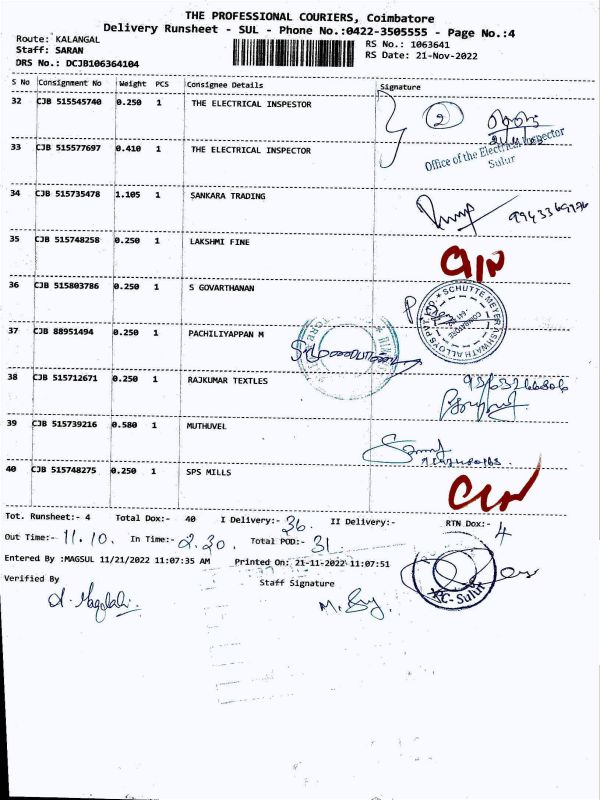 THE PROFESSIONAL COURIERS, Coimbatore
Delivery Runsheet - SUL - Phone No.:0422-3505555 - Page No.:4
Route: KALANGAL
Staff: SARAN
DRS No.: DCJB106364104
RS No.: 1063641
RS Date: 21-Nov-2022
S No Consignment No Weight PCS Consignee Details Signature
32 CJB 515545740 0.250 1 THE ELECTRICAL INSPESTOR
2
33 CJB 515577697 0.410 1 THE ELECTRICAL INSPECTOR
Office of the Electrical Inspector
Sulur
34 CJB 515735478 1.105 1 SANKARA TRADING
35 CJB 515748258 0.250 1 LAKSHMI FINE
36 CJB 515803786 0.250 1 S GOVARTHANAN
SCHUTTE MEYER ASHWATH ALLOYS PVT LTD
COIMBATORE
37 CJB 88951494 0.250 1 PACHILIYAPPAN M
38 CJB 515712671 0.250 1 RAJKUMAR TEXTLES
39 CJB 515739216 0.580 1 MUTHUVEL
40 CJB 515748275 0.250 1 SPS MILLS
Tot. Runsheet:- 4 Total Dox:- 40 I Delivery:- 36. II Delivery:- RTN Dox:- 4
Out Time:- 11.10. In Time:- 2.30. Total POD:- 31
Entered By :MAGSUL 11/21/2022 11:07:35 AM Printed On: 21-11-2022 11:07:51
Verified By Staff Signature
PC-Sulur